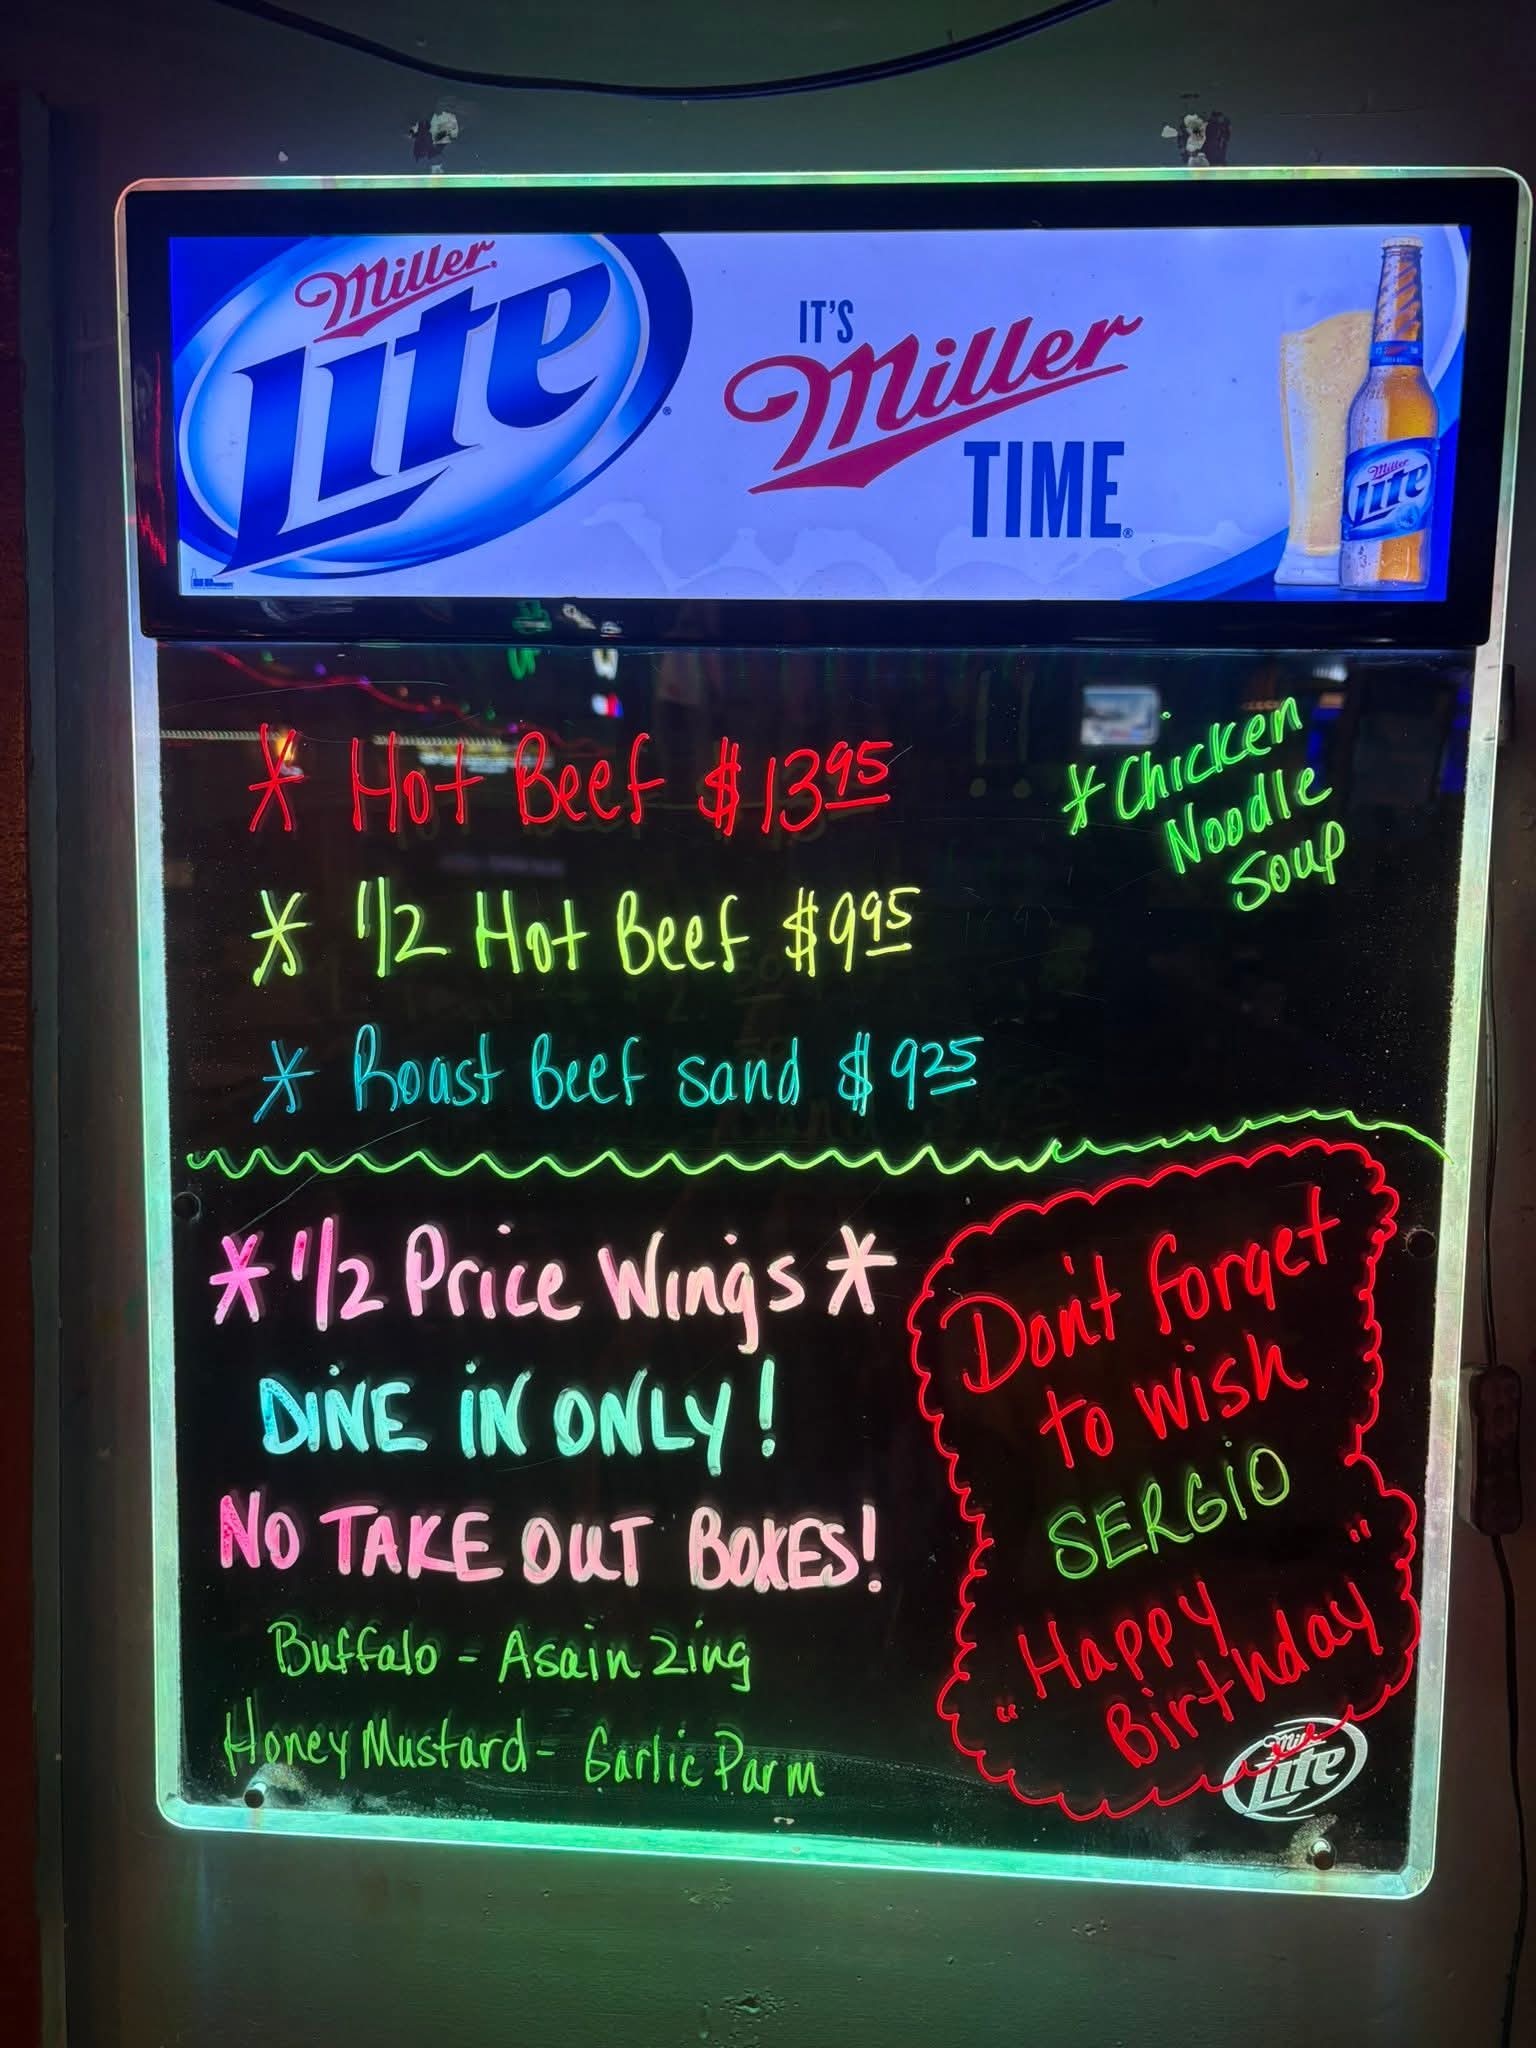 Miller
Lite
IT'S
Miller
TIME
Miller
Lite
* Hot Beef $13 95
* Chicken
Noodle
Soup
* 1/2 Hot Beef $9 95
* Roast Beef sand $9 25
* 1/2 Price Wings *
DINE IN ONLY!
NO TAKE OUT BOXES!
Buffalo - Asain Zing
Honey Mustard - Garlic Parm
Don't forget
to wish
SERGIO
"Happy
Birthday"
Lite